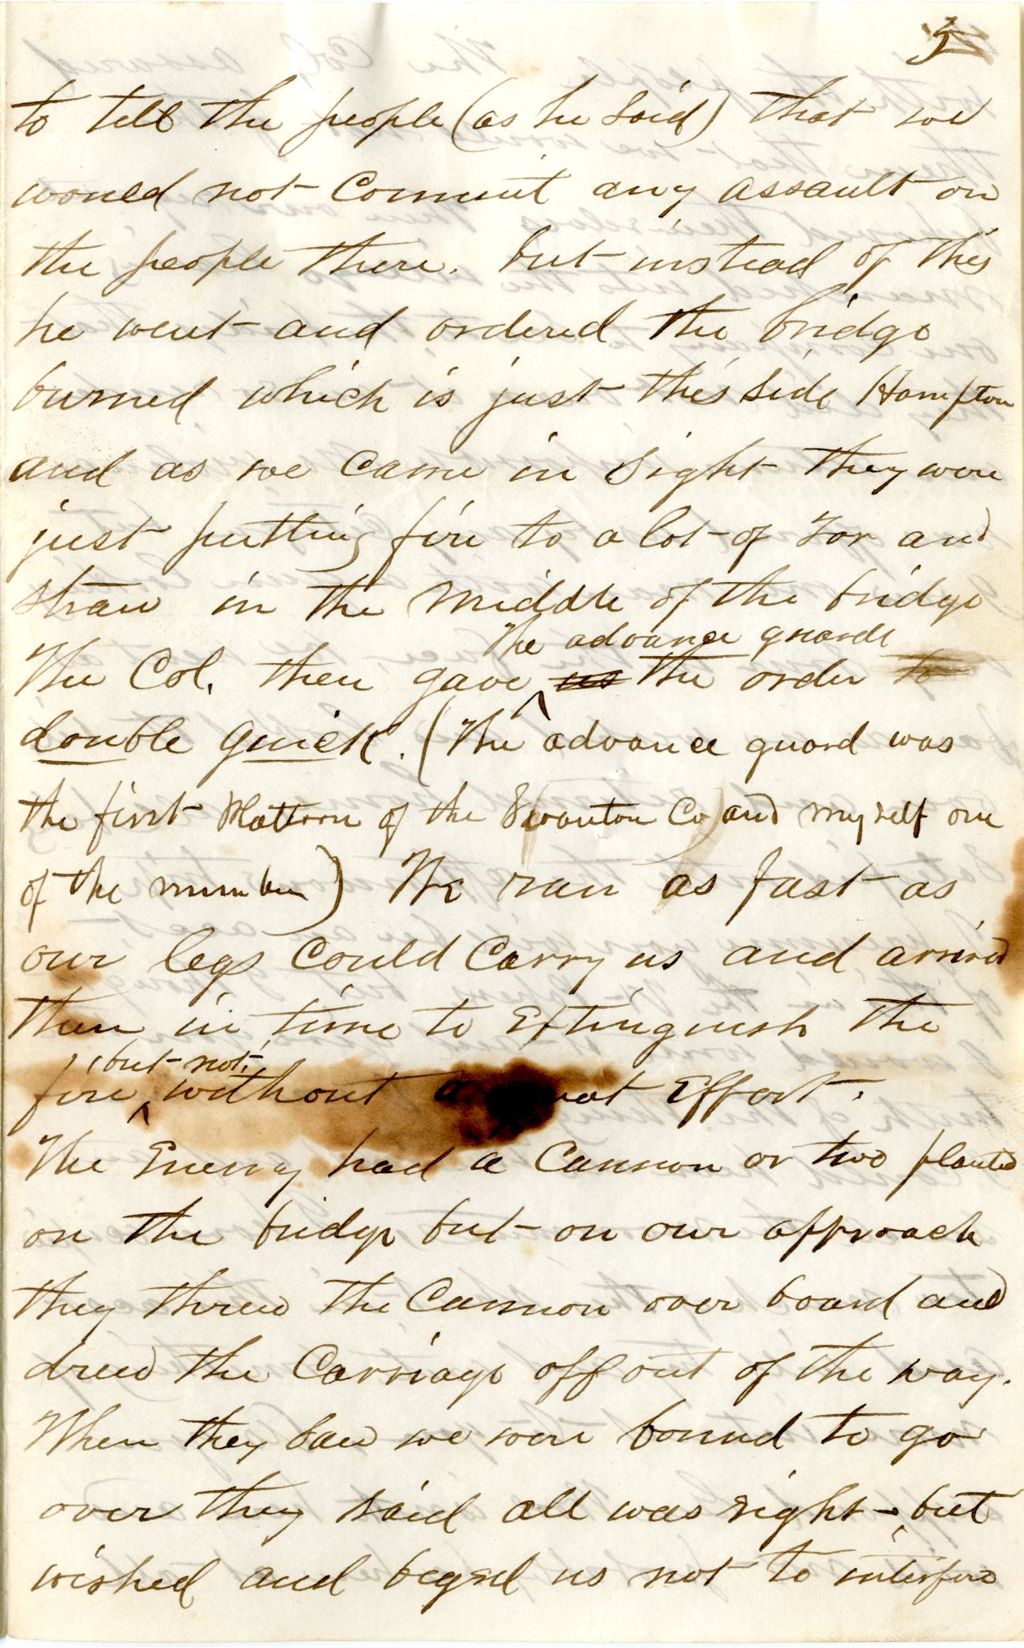 5
to tell the people (as he said) that we
would not Commit any assault on
the people there. but instead of this
he went and ordered the bridge
burned which is just this side Hampton
and as we came in sight they were
just putting fire to a lot of Tar and
straw in the middle of the bridge
The advance guards
The Col. then gave us the order to
double quick. (The advance guard was
the first Plattoon of the Swanton Co) and myself one
of the number) We ran as fast as
our legs could carry us and arrived
then in time to Extinguish the
but not
fire without a Effort.
The Enemy had a Cannon or two planted
on the bridge but on our approach
they threw the Cannon over board and
drew the Carriage off out of the way.
When they saw we were bound to go
over they said all was right but
wished and beged us not to interfere